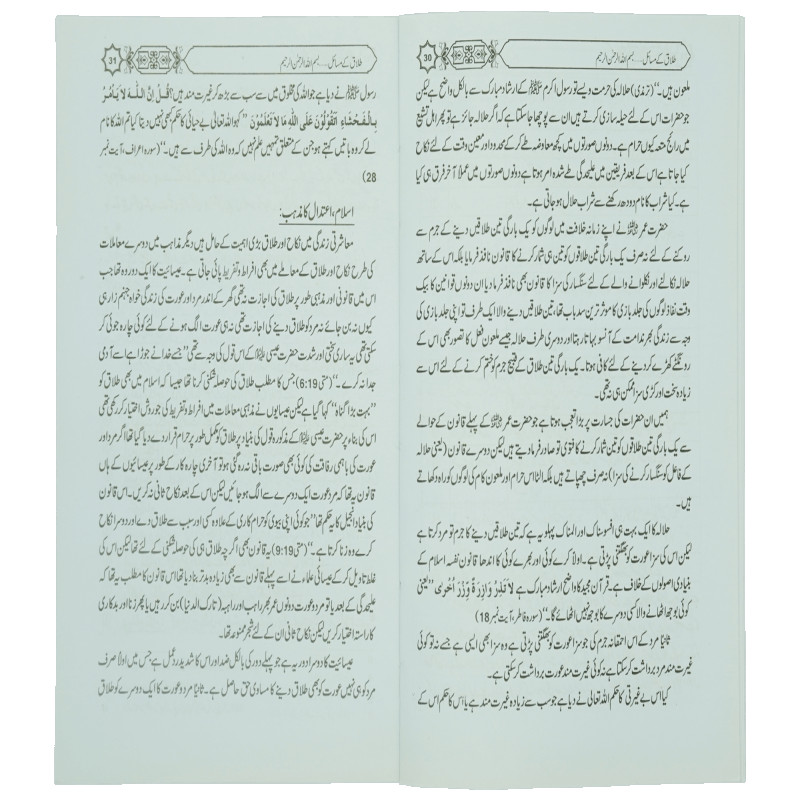 30
طلاق کے مسائل ..... بسم اللہ الرحمٰن الرحیم
ملعون ہیں۔“ (ترمذی) حلالہ کی حرمت ویسے تو رسول اکرم ﷺ کے ارشاد مبارک سے بالکل واضح ہے لیکن
جو حضرات اس کے لئے حیلہ سازی کرتے ہیں ان سے پوچھا جا سکتا ہے کہ اگر حلالہ جائز ہے تو پھر اہل تشیع
میں رائج متعہ کیوں حرام ہے۔ دونوں صورتوں میں کچھ معاوضہ طے کر کے محدود اور معین وقت کے لئے نکاح
کیا جاتا ہے اس کے بعد فریقین میں علیحدگی طے شدہ امر ہوتا ہے دونوں صورتوں میں عملاً آخر فرق ہی کیا
ہے۔ کیا شراب کا نام دودھ رکھنے سے شراب حلال ہو جاتی ہے۔
حضرت عمر نے اپنے زمانہ خلافت میں لوگوں کو یک بارگی تین طلاقیں دینے کے جرم سے
روکنے کے لئے نہ صرف یک بارگی تین طلاقوں کو تین ہی شمار کرنے کا قانون نافذ فرمایا بلکہ اس کے ساتھ
حلالہ نکالنے اور نکلوانے والے کے لئے سنگسار کی سزا کا قانون بھی نافذ فرما دیا ان دونوں قوانین کا بیک
وقت نفاذ لوگوں کی جلد بازی کا موثر ترین سد باب تھا، تین طلاقیں دینے والا ایک طرف تو اپنی جلد بازی کی
وجہ سے زندگی بھر ندامت کے آنسو بہاتا رہتا اور دوسری طرف حلالہ جیسے ملعون فعل کا تصور بھی اس کے
رونگٹے کھڑے کر دینے کے لئے کافی ہوتا۔ یک بارگی تین طلاق کے قبیح جرم کو ختم کرنے کے لئے اس سے
زیادہ سخت اور کڑی سزا ممکن ہی نہ تھی۔
ہمیں ان حضرات کی جسارت پر بڑا تعجب ہوتا ہے جو حضرت عمر کے پہلے قانون کے حوالے
سے یک بارگی تین طلاقوں کو تین شمار کرنے کا فتویٰ تو صادر فرما دیتے ہیں لیکن دوسرے قانون (یعنی حلالہ
کے فاعل کو سنگسار کرنے کی سزا) نہ صرف چھپاتے ہیں بلکہ الٹا اس حرام اور ملعون کام کی لوگوں کو راہ دکھاتے
ہیں۔
حلالہ کا ایک بہت ہی افسوسناک اور المناک پہلو یہ ہے کہ تین طلاقیں دینے کا جرم تو مرد کرتا ہے
لیکن اس کی سزا عورت کو بھگتنی پڑتی ہے۔ اولاً کرے کوئی اور بھرے کوئی کا اندھا قانون نفسہ اسلام کے
بنیادی اصولوں کے خلاف ہے۔ قرآن مجید کا واضح ارشاد مبارک ہے لَا تَزِرُ وَازِرَةٌ وِّزْرَ اُخْرٰی ”یعنی
کوئی بوجھ اٹھانے والا کسی دوسرے کا بوجھ نہیں اٹھائے گا۔“ (سورہ فاطر، آیت نمبر 18)
ثانیاً مرد کے اس احمقانہ جرم کی جو سزا عورت کو بھگتنی پڑتی ہے وہ سزا بھی ایسی ہے جسے نہ تو کوئی
غیرت مند مرد برداشت کر سکتا ہے نہ کوئی غیرت مند عورت برداشت کر سکتی ہے۔
کیا اس بے غیرتی کا حکم اللہ تعالیٰ نے دیا ہے جو سب سے زیادہ غیرت مند ہے یا اس کا حکم اس کے
31
طلاق کے مسائل ..... بسم اللہ الرحمٰن الرحیم
رسول ﷺ نے دیا ہے جو اللہ کی مخلوق میں سے سب سے بڑھ کر غیرت مند ہیں؟ قُلْ اِنَّ اللّٰہَ لَا یَاْمُرُ
بِالْفَحْشَآءِ اَتَقُوْلُوْنَ عَلَی اللّٰہِ مَا لَا تَعْلَمُوْنَ ”کہو اللہ تعالیٰ بے حیائی کا حکم کبھی نہیں دیتا کیا تم اللہ کا نام
لے کر وہ باتیں کہتے ہو جن کے متعلق تمہیں علم نہیں کہ وہ اللہ کی طرف سے ہیں۔“ (سورہ اعراف، آیت نمبر
28)
اسلام، اعتدال کا مذہب:
معاشرتی زندگی میں نکاح اور طلاق بڑی اہمیت کے حامل ہیں دیگر مذاہب میں دوسرے معاملات
کی طرح نکاح اور طلاق کے معاملے میں بھی افراط و تفریط پائی جاتی ہے۔ عیسائیت کا ایک دور وہ تھا جب
اس میں قانونی اور مذہبی طور پر طلاق کی اجازت نہ تھی گھر کے اندر مرد اور عورت کی زندگی خواہ جہنم زار ہی
کیوں نہ بن جائے نہ مرد کو طلاق دینے کی اجازت تھی نہ ہی عورت الگ ہونے کے لئے کوئی چارہ جوئی کر
سکتی تھی یہ ساری سختی اور شدت حضرت عیسیٰ کے اس قول کی وجہ سے تھی ”جسے خدا نے جوڑا ہے اسے آدمی
جدا نہ کرے۔“ (متی 6:19) جس کا مطلب طلاق کی حوصلہ شکنی کرنا تھا جیسا کہ اسلام میں بھی طلاق کو
”بہت بڑا گناہ“ کہا گیا ہے لیکن عیسائیوں نے مذہبی معاملات میں افراط و تفریط کی جو روش اختیار کر رکھی تھی
اس کی بناء پر حضرت عیسیٰ کے مذکورہ قول کی بنیاد پر طلاق کو مکمل طور پر حرام قرار دے دیا گیا تھا اگر مرد اور
عورت کی باہمی رفاقت کی کوئی بھی صورت باقی نہ رہ گئی ہو تو آخری چارہ کار کے طور پر عیسائیوں کے ہاں
قانون یہ تھا کہ مرد عورت ایک دوسرے سے الگ ہو جائیں لیکن اس کے بعد نکاح ثانی نہ کریں۔ اس قانون
کی بنیاد انجیل کا یہ حکم تھا ”جو کوئی اپنی بیوی کو حرام کاری کے علاوہ کسی اور سبب سے طلاق دے اور دوسرا نکاح
کرے وہ زنا کرتا ہے۔“ (متی 9:19) یہ قانون بھی اگرچہ طلاق ہی کی حوصلہ شکنی کے لئے تھا لیکن اس کی
غلط تاویل کر کے عیسائی علماء نے اسے پہلے قانون سے بھی زیادہ بدتر بنا دیا تھا اس قانون کا مطلب یہ تھا کہ
علیحدگی کے بعد یا تو مرد و عورت دونوں عمر بھر راہب اور راہبہ (تارک الدنیا) بن کر رہیں یا پھر زنا اور بدکاری
کا راستہ اختیار کریں لیکن نکاح ثانی ان کے لئے شجر ممنوعہ تھا۔
عیسائیت کا دوسرا دور یہ ہے جو پہلے دور کی بالکل ضد اور اس کا شدید ردعمل ہے جس میں اولاً صرف
مرد کو ہی نہیں عورت کو بھی طلاق دینے کا مساوی حق حاصل ہے۔ ثانیاً مرد و عورت کا ایک دوسرے کو طلاق